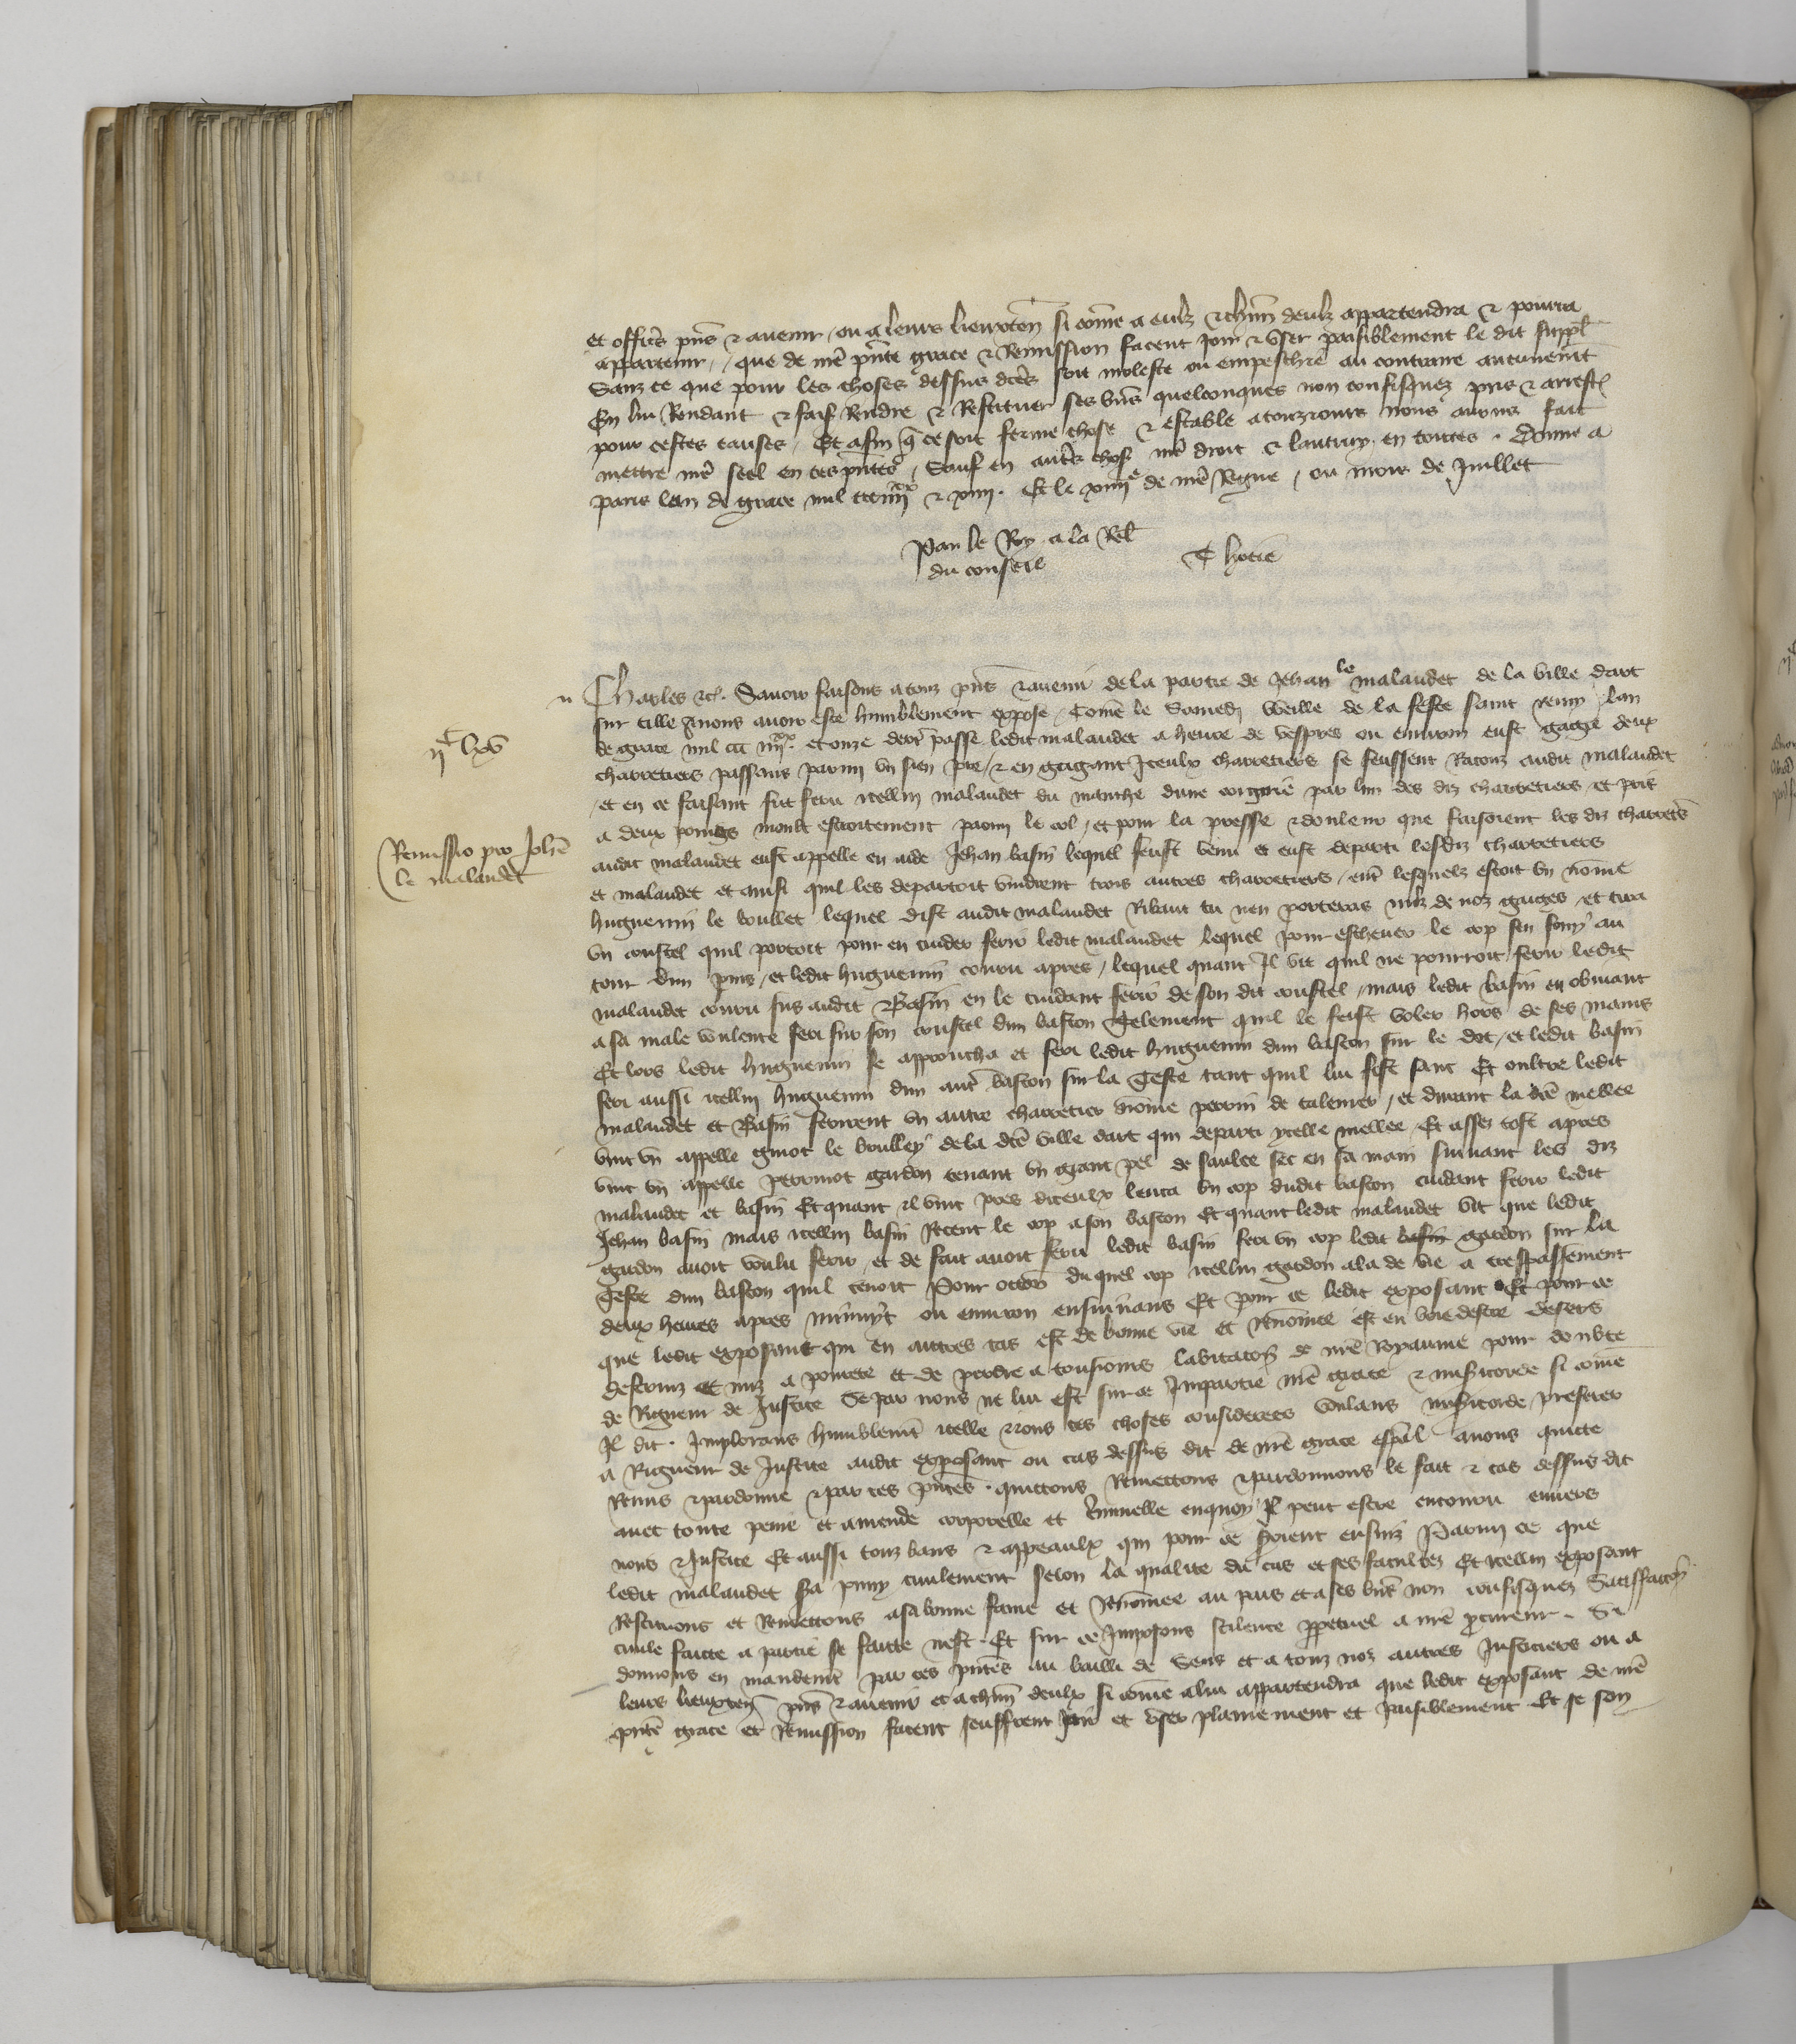 et offic̃s p̃ns & avenir ou a leurs lieuxten̄ si com̄e a eulx & ch̄un deulx appartendra & pourra
appartenir / que de nr̃e p̃nte grace & Remission facent joir & user paisiblement le dit suppl̃
Sanz ce que pour les choses dessus dc̃es soit moleste ou empeschie au contraire aucunemt̃
En lui Rendant & fais̃ Rendre & Restituer ses bn̄s quelconques non confisquez pris & arrest̃
pour cestes causes / Et afin q̃ ce soit ferme chose & estable a touzjours nous avons fait
mettre nr̃e seel en ces p̃ntes / Sauf en autr̃es chos̃ nr̃e droit & lautruy en toutes . Donne a
paris lan de grace mil ccciiiixx & xiiii. Et le xiiiie de nr̃e Regne / ou mois de Juillet
Par le Roy a la Rel̃
du conseil
T hocie
Charles &c̃. Savoir faisons a touz p̃ns & avenir de la partie de Jehan le malaudet de la ville dart
sur tille A nous avoir este humblement expose / Com̄e le Samedi Veille de la feste saint remy lan
de grace mil ccc iiiixx et onze derr̃ passe ledit malaudet a heure de vespres ou environ eust gaige deux
iic lxv
charretiers passans parmi un sien pre / & en gaigant Iceulx charretiers se feussent Racouz audit malaudet
et en ce faisant fut feru icellui malaudet du manche dune coignie par lun des diz charretiers et pris
a deux poings moult estroitement parmi le col / et pour la presse & douleur que faisoient les diz charret̃rs
Remissio pro Joh̃e
le malaudet
audit malaudet eust appelle en aide Jehan basin lequel feust venu et eust departi lesdiz charretiers
et malaudet et ainsi quil les departoit vindrent trois autres charretiers / ent̃ lesquelz estoit un nom̄e
huguenin le boullet lequel dist audit malaudet Ribaut tu nen porteras miz de noz gaiges et tira
un coustel quil portoit pour en cuider ferir ledit malaudet lequel pour eschever le cop sen fouy au
tour dun puis / et ledit huguenin couru apres / lequel quant Il vit quil ne pourroit ferir ledit
malaudet couru sus audit Basin en le cuidant ferir de son dit coustel / mais ledit basin en obviant
a sa male voulente feri sur son coustel dun baston Telement quil le feist voler hors de ses mains
Et lors ledit huguenin se approucha et feri ledit huguenin dun baston sur le dot / et ledit basin
feri aussi icellui huguenin dun autr̃ baston sur la Teste tant quil lui fist sanc Et oultre ledit
malaudet et Basin ferirent un autre charretier nom̄e perrin de talemer / et durant la dc̃e mellee
vint un appelle guiot le boulley de la dc̃e ville dart qui departi ycelle mellee Et assez tost apres
vint un appelle perrinot gardon tenant un grant pel de saulce sec en sa main suivant les diz
malaudet et basin Et quant il vint pres diceulx leuca un cop dudit baston cuidant ferir ledit
Jehan basin mais icellui basin Recent le cop a son baston Et quant ledit malaudet vit que ledit
gardon avoit voulu ferir / et de fait avoit feru ledit basin feri un cop ledit basin gardon sur la
Teste dun baston quil tenoit Pour occõn du quel cop icellui gardon ala de vie a trespassement
deux heures apres minuyt ou environ ensuivans Et pour ce ledit exposant Et pour ce
que ledit exposant qui en autres cas est de bonne vie et Renom̄ee est en voie destre desers
destruiz et miz a povrete et de perdre a tousiours labitacõn de nr̃e Royaume pour doubte
de Rigueur de Justice Se par nous ne lui est sur ce Impartie nr̃e grace & misericorde si com̄e
Il dit . Implorans humblemt̃ icelle Nous ces choses considerees voulans misericorde preferer
a Rigueur de Justice audit exposant ou cas dessus dit de nr̃e grace esp̃al avons quicte
Remis & pardonne & par ces p̃ntes . quictons Remettons & pardonnons le fait & cas dessus dit
avec toute peine et amende corporelle et c̃minelle enquoy Il peut estre encouru envers
nous & Justice Et aussi touz bans & appeaulx qui pour ce soient ensuiz Parmy ce que
ledit malaudet s̃a puny civilement selon la qualite du cas et ses facultez Et icellui exposant
Restituons et Remettons a sa bonne fame et Renom̄ee au pais et a ses bn̄s non confisquez Satisffacõn
civile faicte a partie se faicte nest . Et sur ce Imposons scilence p̱petuel a nr̃e p̱cureur . Si
donnons en mandemt̃ par ces p̃ntes au bailli de Sens et a touz noz autres Justiciers ou a
leurs lieuxten̄ p̃ns & avenir et a ch̄un deulx si com̄e a lui appartendra que ledit exposant de nr̃e
p̃nte grace et Remission facent seuffrent joir et user plainement et paisiblement Et se son